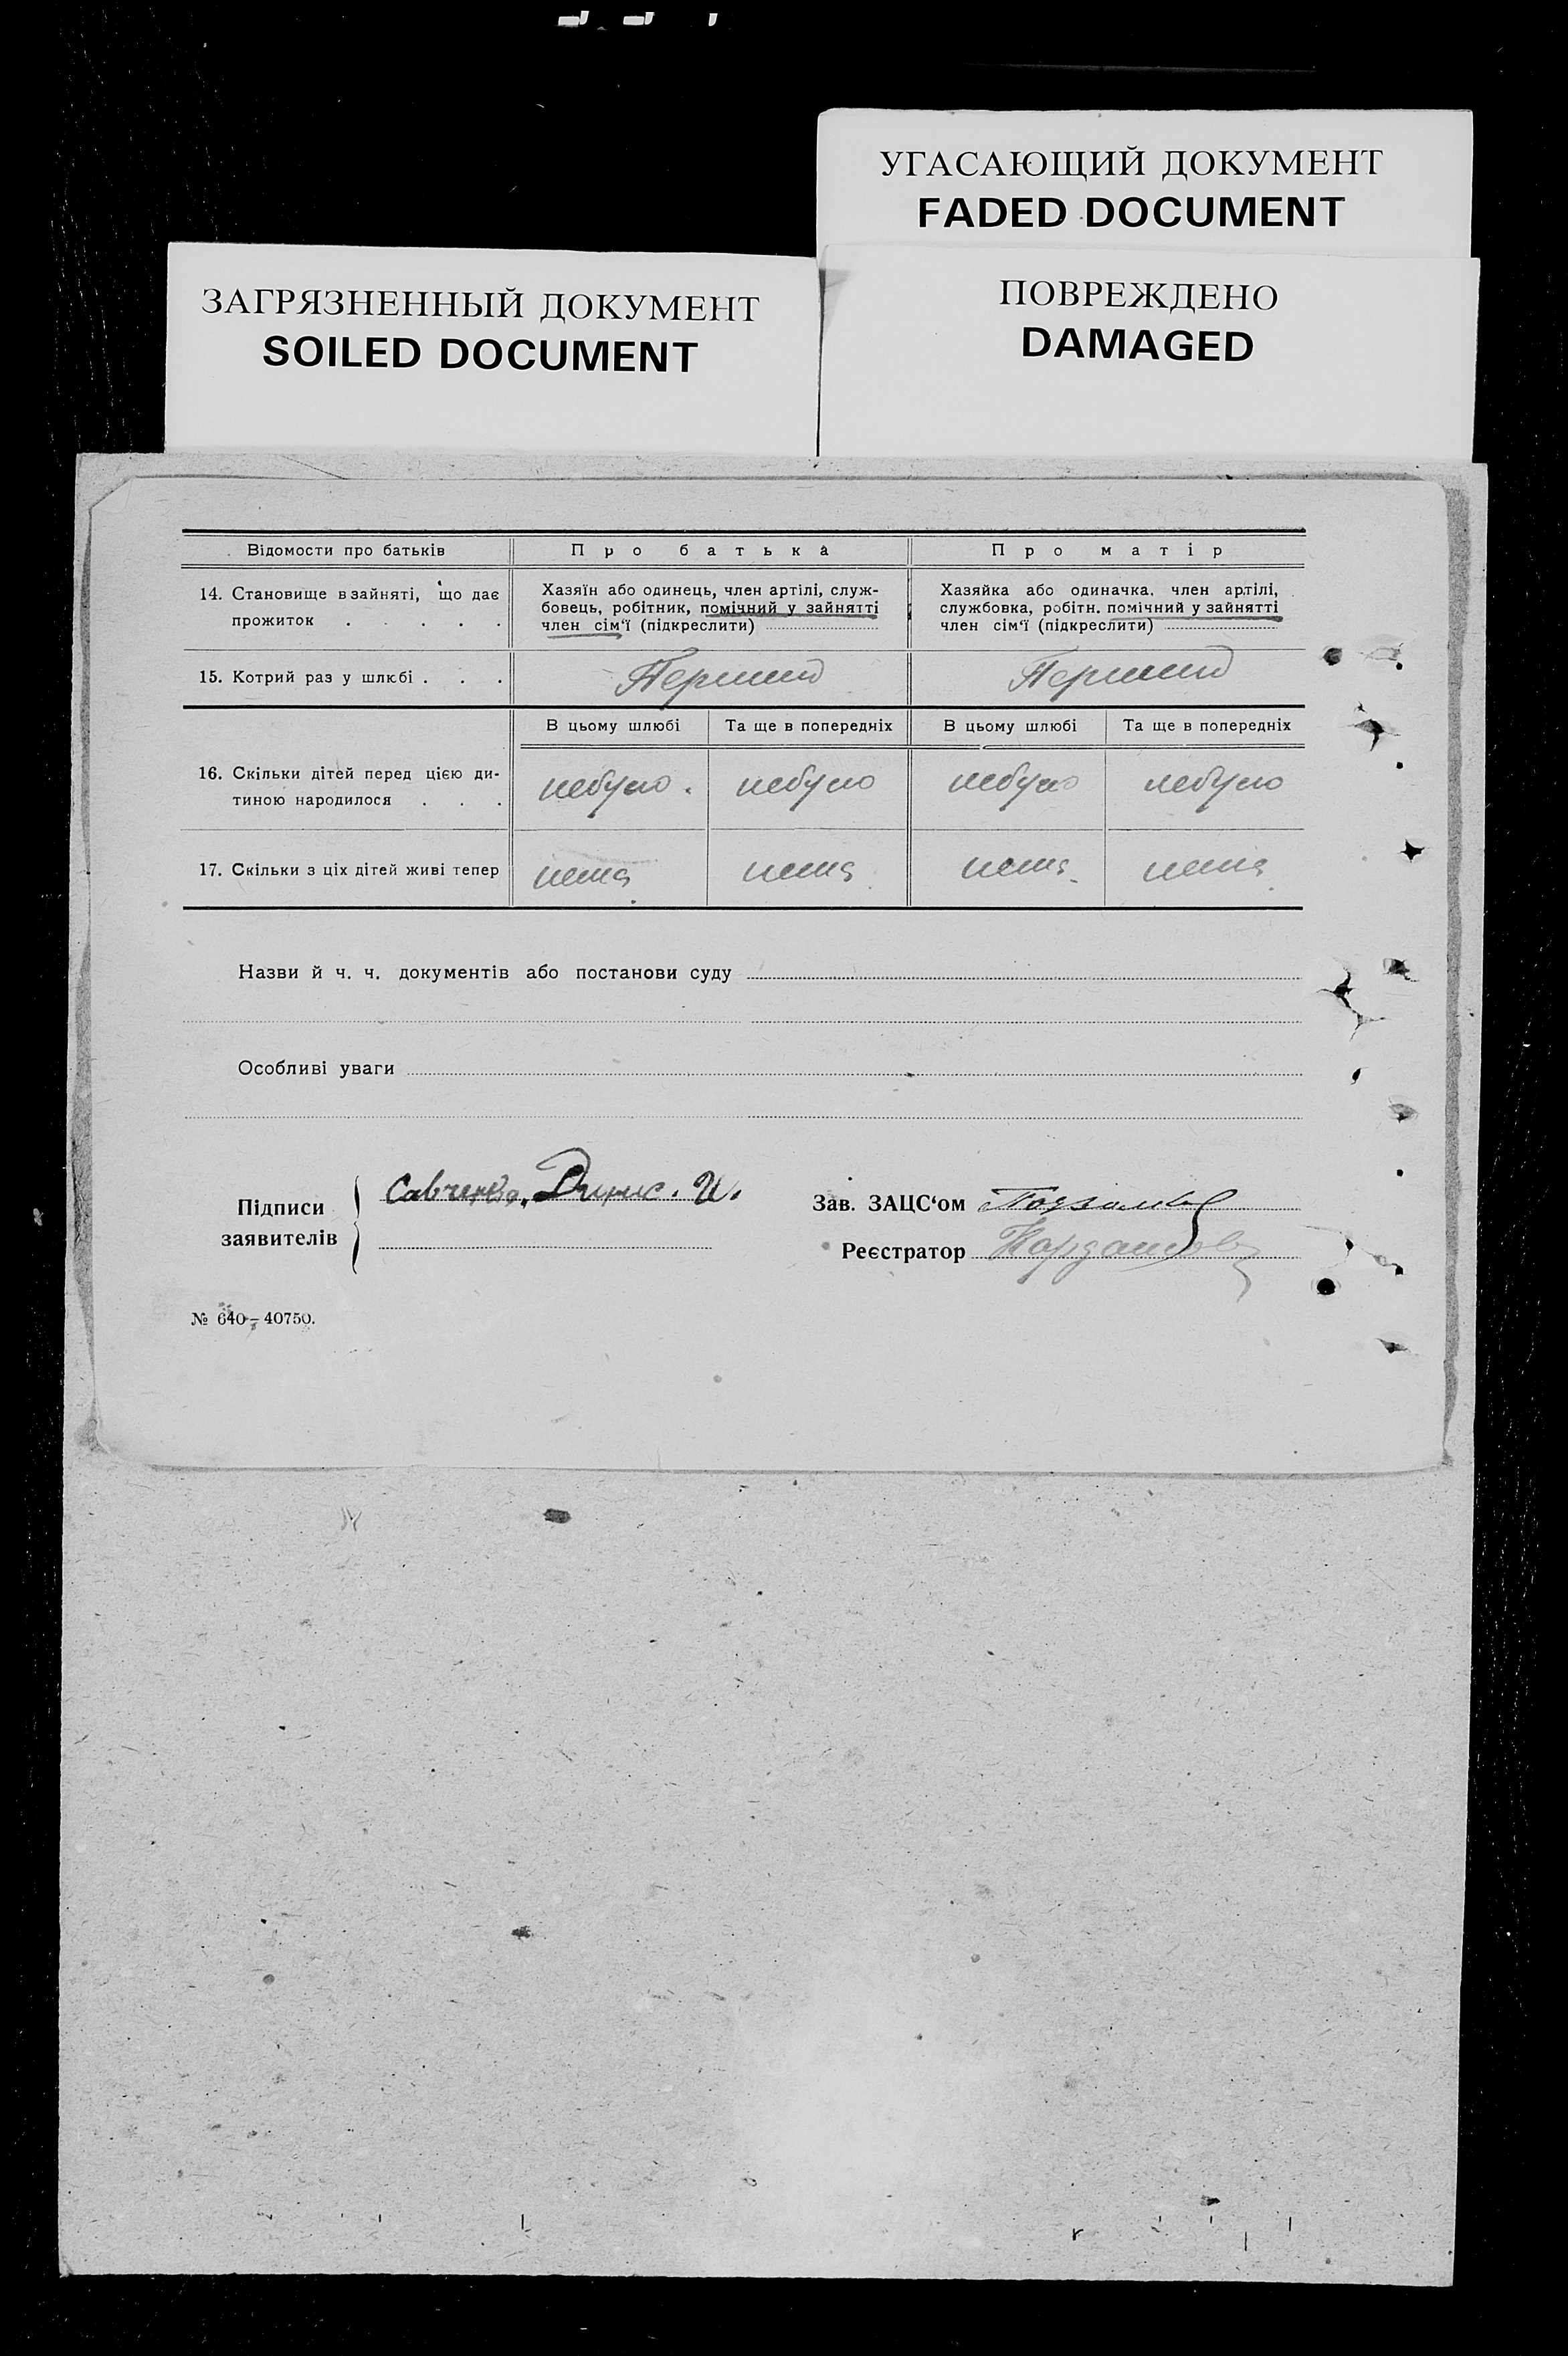 УГАСАЮЩИЙ ДОКУМЕНТ
FADED DOCUMENT
ЗАГРЯЗНЕННЫЙ ДОКУМЕНТ
SOILED DOCUMENT
ПОВРЕЖДЕНО
DAMAGED
Відомости про батьків
Про батька
Про матір
14. Становище в зайняті, що дає
прожиток . . . . .
Хазяїн або одинець, член артілі, служ-
бовець, робітник, помічний у зайнятті
член сім‘ї (підкреслити)
Хазяйка або одиначка, член артілі,
службовка, робітн. помічний у зайнятті
член сім‘ї (підкреслити)
15. Котрий раз у шлюбі . . .
Перший
Перший
В цьому шлюбі
Та ще в попередніх
В цьому шлюбі
Та ще в попередніх
16. Скільки дітей перед цією ди-
тиною народилося . . .
небуло.
небуло
небуло
небуло
17. Скільки з ціх дітей живі тепер
нема
нема
нема
нема
Назви й ч. ч. документів або постанови суду
Особливі уваги
Підписи
заявителів
Савченко, Динис. И.
Зав. ЗАЦС‘ом
Реєстратор
№ 640–40750.